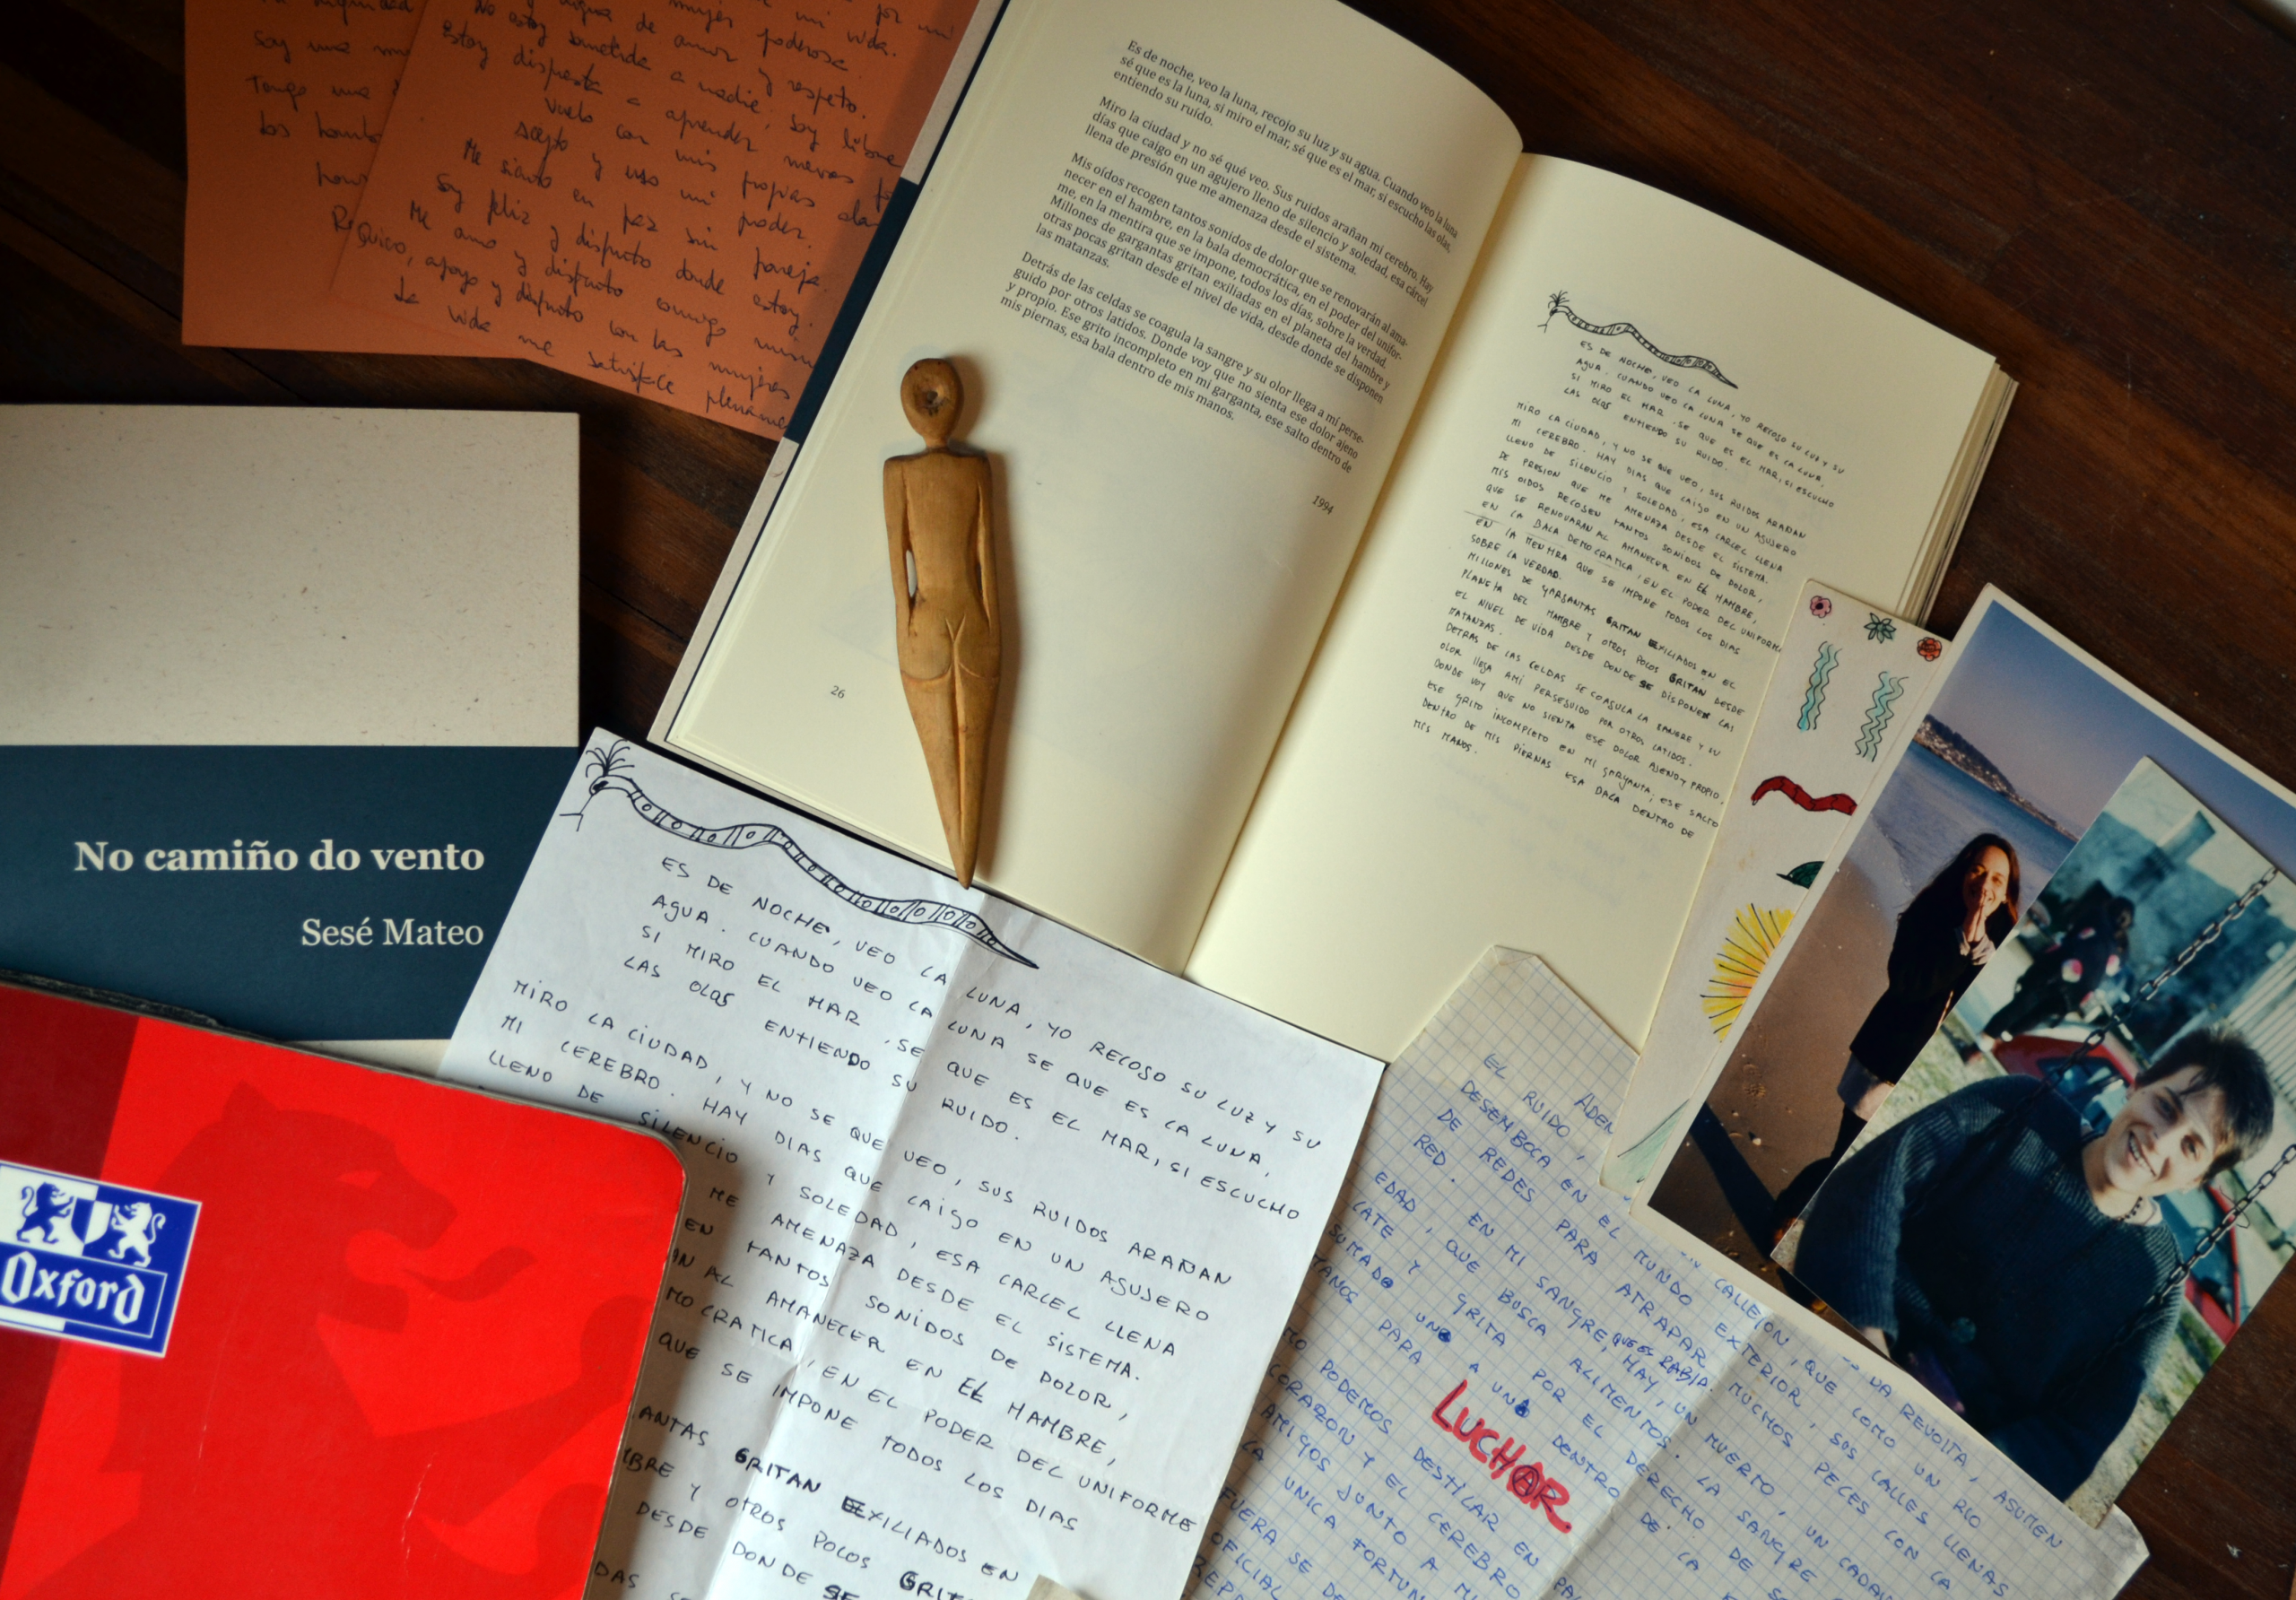 por mi
mujer poderosa
mi vida.
agua de amor y respeto.
No estoy sometida a nadie; soy libre
Estoy dispuesta a aprender nuevas
Vuelo con mis propias
acepto y uso mi poder.
Me siento en paz sin pareja.
Soy feliz y disfruto donde estoy.
Me amo y disfruto conmigo
Quiero, apoyo y disfruto con las mujeres
La vida me satisface
Soy una
Tengo una
los
Es de noche, veo la luna, recojo su luz y su agua. Cuando veo la luna
sé que es la luna, si miro el mar, sé que es el mar, si escucho las olas,
entiendo su ruído.
Miro la ciudad y no sé qué veo. Sus ruidos arañan mi cerebro. Hay
días que caigo en un agujero lleno de silencio y soledad, esa cárcel
llena de presión que me amenaza desde el sistema.
Mis oídos recogen tantos sonidos de dolor que se renovarán al ama-
necer en el hambre, en la bala democrática, en el poder del unifor-
me, en la mentira que se impone, todos los días, sobre la verdad.
Millones de gargantas gritan exiliadas en el planeta del hambre y
otras pocas gritan desde el nivel de vida, desde donde se disponen
las matanzas.
Detrás de las celdas se coagula la sangre y su olor llega a mí perse-
guido por otros latidos. Donde voy que no sienta ese dolor ajeno
y propio. Ese grito incompleto en mi garganta, ese salto dentro de
mis piernas, esa bala dentro de mis manos.
1994
26
ES DE NOCHE, VEO LA LUNA, YO RECOJO SU LUZ Y SU
AGUA. CUANDO VEO LA LUNA SE QUE ES LA LUNA,
SI MIRO EL MAR, SE QUE ES EL MAR, SI ESCUCHO
LAS OLAS ENTIENDO SU RUIDO.
MIRO LA CIUDAD, Y NO SE QUE VEO, SUS RUIDOS ARAÑAN
MI CEREBRO. HAY DIAS QUE CAIGO EN UN AGUJERO
LLENO DE SILENCIO Y SOLEDAD, ESA CARCEL LLENA
DE PRESION QUE ME AMENAZA DESDE EL SISTEMA.
MIS OIDOS RECOGEN TANTOS SONIDOS DE DOLOR,
QUE SE RENOVARAN AL AMANECER EN EL HAMBRE,
EN LA BALA DEMOCRATICA, EN EL PODER DEL UNIFORME
EN LA MENTIRA QUE SE IMPONE TODOS LOS DIAS
SOBRE LA VERDAD.
MILLONES DE GARGANTAS GRITAN EXILIADOS EN EL
PLANETA DEL HAMBRE Y OTROS POCOS GRITAN DESDE
EL NIVEL DE VIDA DESDE DONDE SE DISPONEN LAS
MATANZAS.
DETRAS DE LAS CELDAS SE COAGULA LA SANGRE Y SU
OLOR LLEGA AMI PERSEGUIDO POR OTROS LATIDOS.
DONDE VOY QUE NO SIENTA ESE DOLOR AJENO Y PROPIO.
ESE GRITO INCOMPLETO EN MI GARGANTA; ESE SALTO
DENTRO DE MIS PIERNAS ESA BALA DENTRO DE
MIS MANOS.
No camiño do vento
Sesé Mateo
Oxford
ES DE NOCHE, VEO LA LUNA, YO RECOJO SU LUZ Y SU
AGUA. CUANDO VEO LA LUNA SE QUE ES LA LUNA,
SI MIRO EL MAR, SE QUE ES EL MAR, SI ESCUCHO
LAS OLAS ENTIENDO SU RUIDO.
MIRO LA CIUDAD, Y NO SE QUE VEO, SUS RUIDOS ARAÑAN
MI CEREBRO. HAY DIAS QUE CAIGO EN UN AGUJERO
LLENO DE SILENCIO Y SOLEDAD, ESA CARCEL LLENA
ME AMENAZA DESDE EL SISTEMA.
EN TANTOS SONIDOS DE DOLOR,
AN AL AMANECER EN EL HAMBRE,
MOCRATICA, EN EL PODER DEL UNIFORME
QUE SE IMPONE TODOS LOS DIAS
ANTAS GRITAN EXILIADOS EN
MBRE Y OTROS POCOS GRITA
DESDE DONDE SE
DAS
EL RUIDO, ADEN
DESEMBOCA EN EL MUNDO EXTERIOR, SUS CALLES LLENAS
DE REDES PARA ATRAPAR MUCHOS PECES CON LA
RED.
CALLEJON, QUE COMO UN RIO
REVOLTA, ASUMEN
EN MI SANGRE, QUE ES RABIA. HAY, UN MUERTO, UN
EDAD, QUE BUSCA ALIMENTOS. LA SANGRE
LATE Y GRITA POR EL DERECHO DE
SUMADO UNO A UNO DENTRO DE LA
TANOS PARA
LUCHAR.
PODEMOS DESTILAR EN
CORAZON Y EL CEREBRO
AMIGOS JUNTO A MI
LA UNICA
FUERA SE
OFICIAL